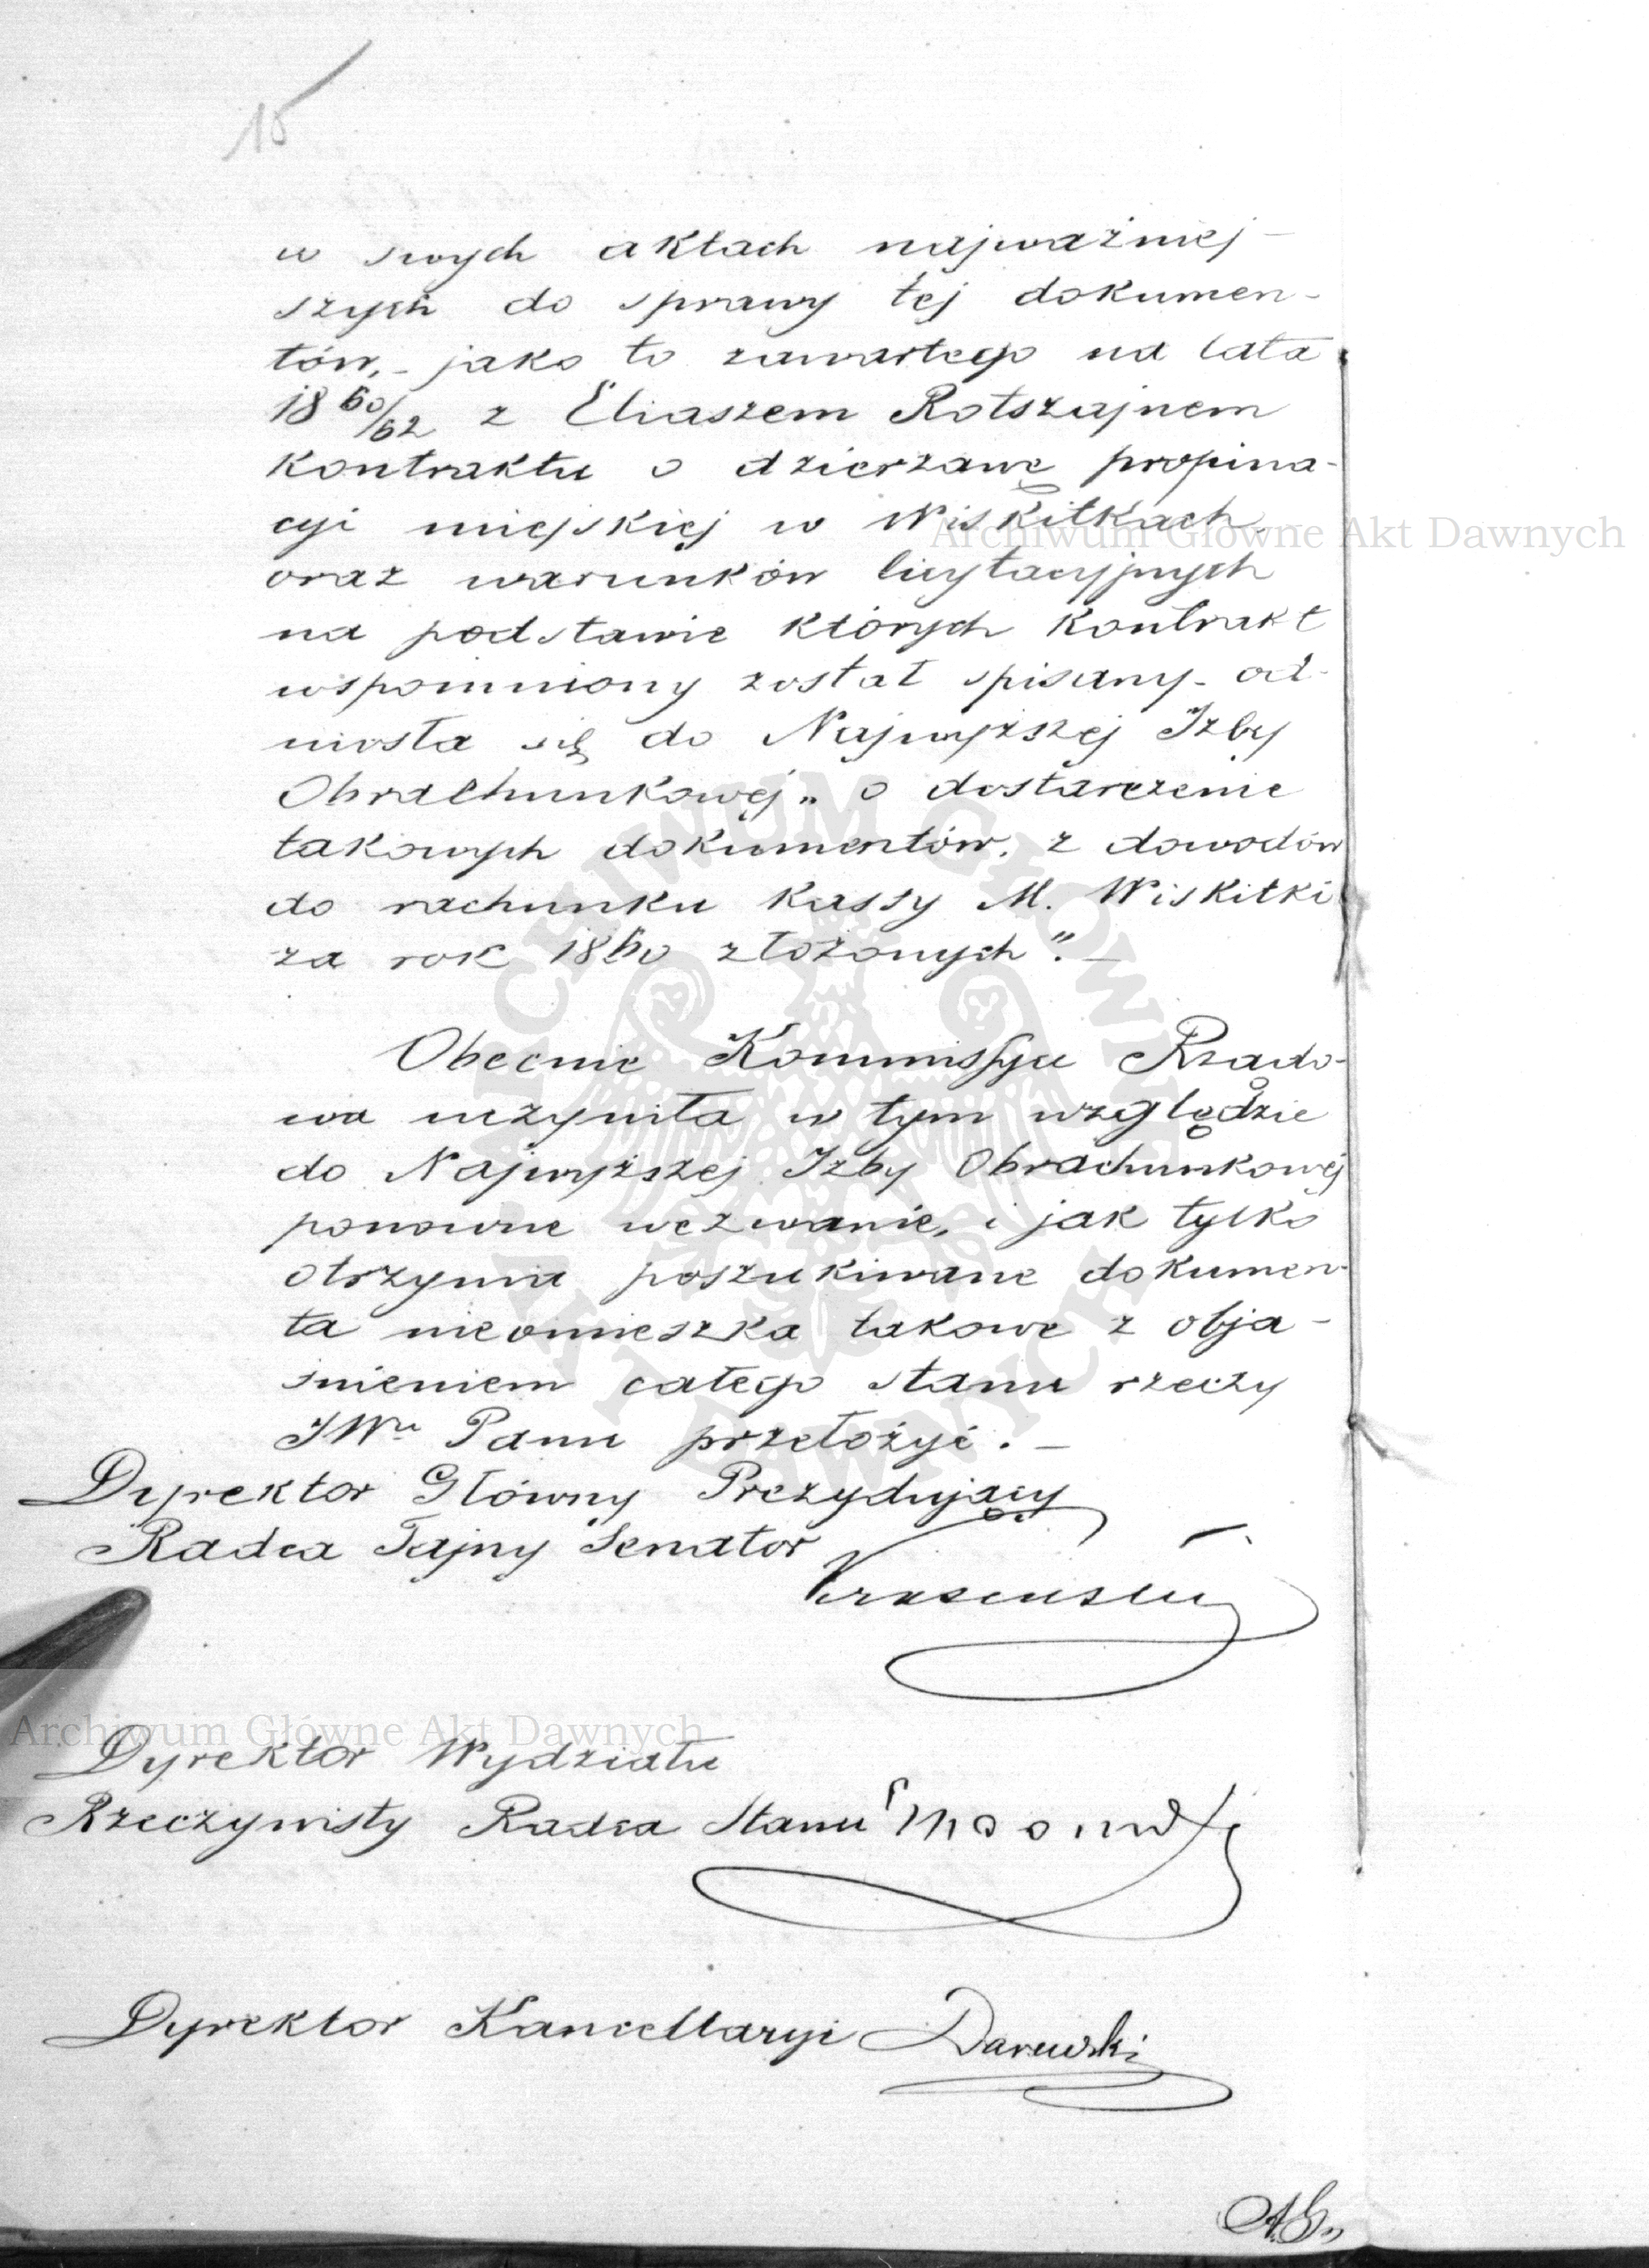 15
w swych aktach najważniej-
szych do sprawy tej dokumen-
tów, - jako to zawartego na lata
18 60/62 z Eliaszem Rotszajnem
kontraktu o dzierżawę propina-
cyi miejskiej w Wiskitkach
oraz warunków licytacyjnych
na podstawie których kontrakt
wspomniony został spisany - od-
niosła się do Najwyższej Izby
Obrachunkowej „ o dostarczenie
takowych dokumentów, z dowodów
do rachunku kassy M. Wiskitki
za rok 1860 złożonych". -
Obecnie Kommissya Rządo-
wa uczyniła w tym względzie
do Najwyższej Izby Obrachunkowej
ponowne wezwanie, i jak tylko
otrzyma poszukiwane dokumen-
ta nieomieszka takowe z obja-
śnieniem całego stanu rzeczy
JWu Panu przełożyć. -
Dyrektor Główny Prezydujący
Radca Tajny Senator
Dyrektor Wydziału
Rzeczywisty Radca Stanu
Dyrektor Kancellaryi Darewski
A.G.
Archiwum Główne Akt Dawnych
Archiwum Główne Akt Dawnych
ARCHIWUM GŁÓWNE AKT DAWNYCH